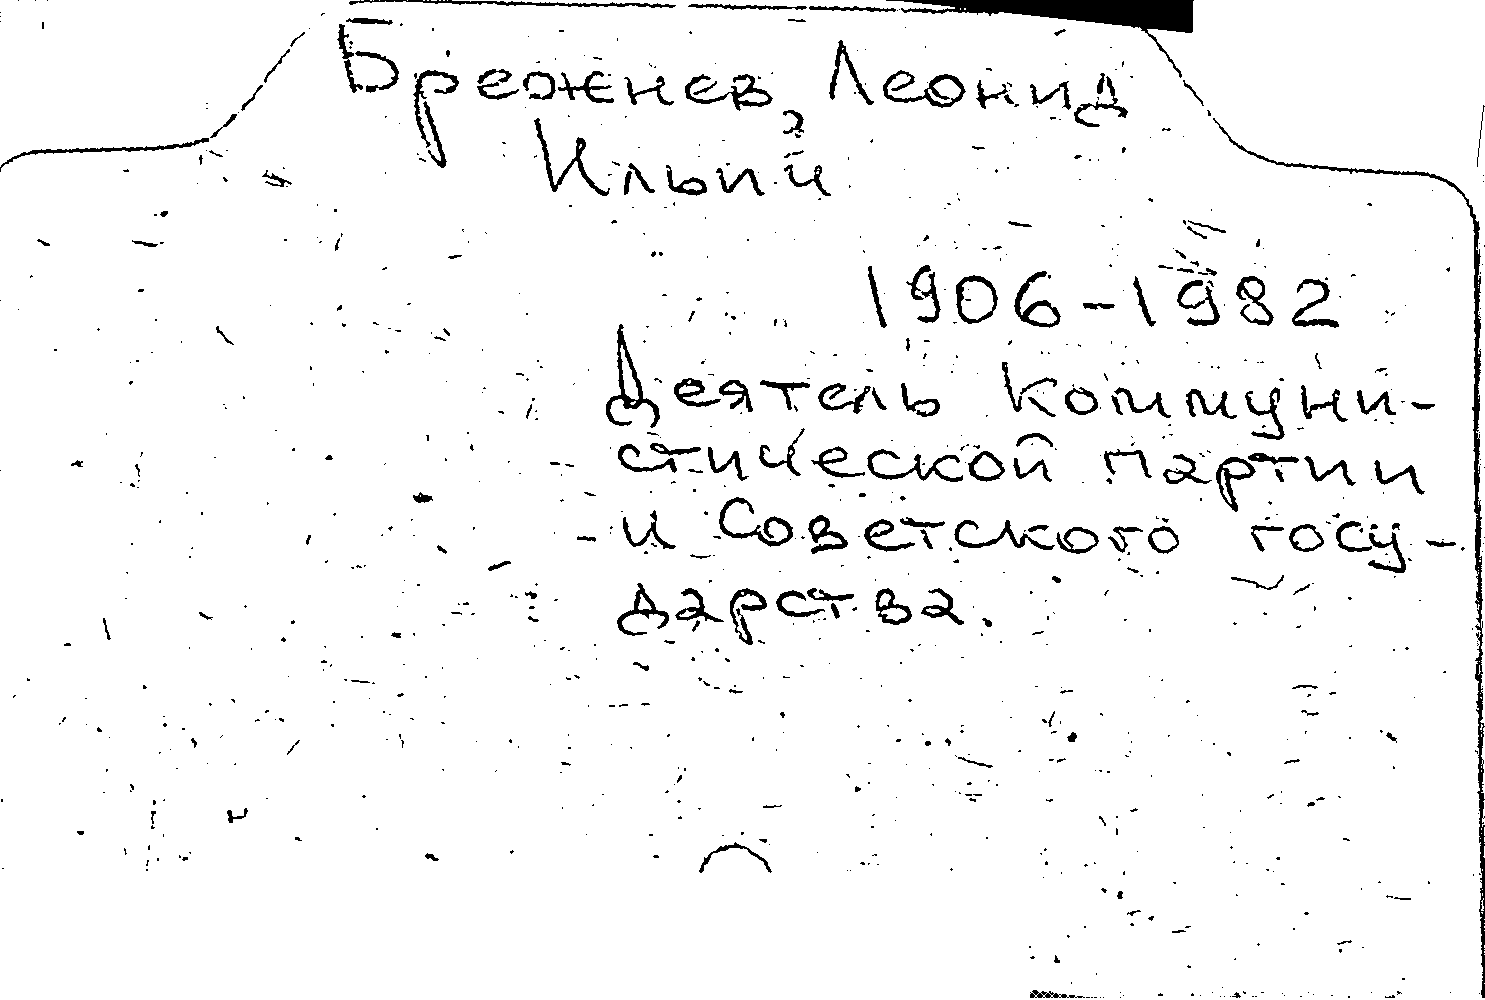 Брежнев, Леонид
Ильич
1906-1982
Деятель Коммуни-
стической партии
и Советского госу-
дарства.